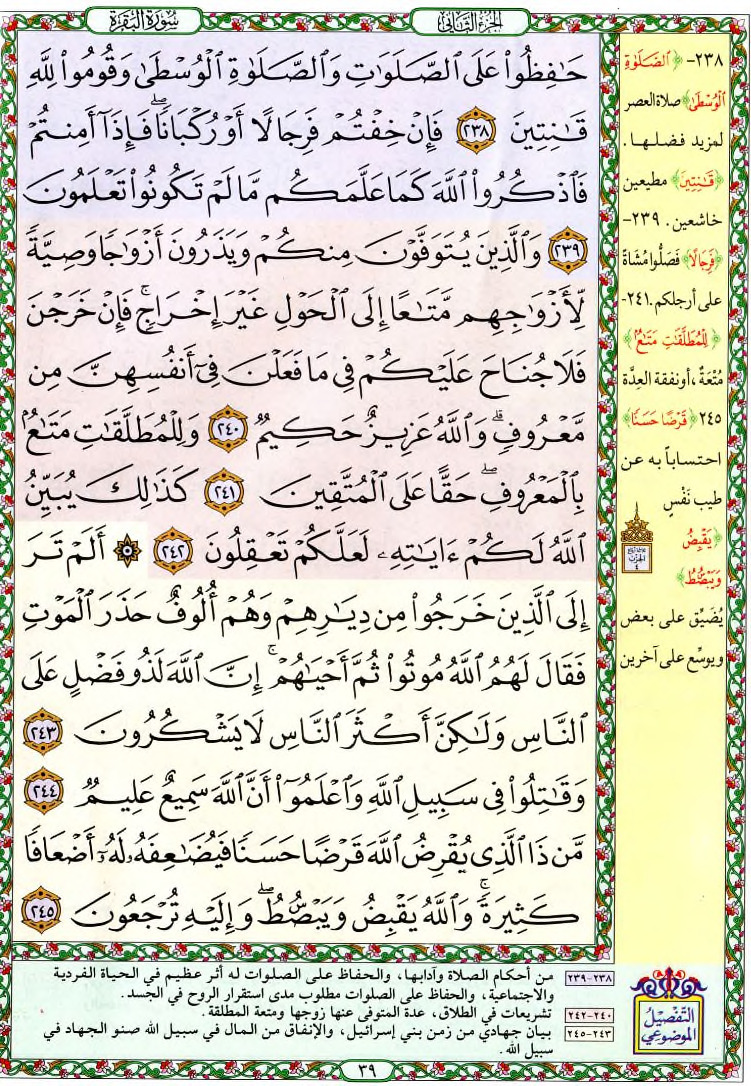 الجزء الثاني
سورة البقرة
حَٰفِظُوا۟ عَلَى ٱلصَّلَوَٰتِ وَٱلصَّلَوٰةِ ٱلْوُسْطَىٰ وَقُومُوا۟ لِلَّهِ
قَٰنِتِينَ ٢٣٨ فَإِنْ خِفْتُمْ فَرِجَالًا أَوْ رُكْبَانًا ۖ فَإِذَآ أَمِنتُمْ
فَٱذْكُرُوا۟ ٱللَّهَ كَمَا عَلَّمَكُم مَّا لَمْ تَكُونُوا۟ تَعْلَمُونَ
٢٣٩ وَٱلَّذِينَ يُتَوَفَّوْنَ مِنكُمْ وَيَذَرُونَ أَزْوَٰجًا وَصِيَّةً
لِّأَزْوَٰجِهِم مَّتَٰعًا إِلَى ٱلْحَوْلِ غَيْرَ إِخْرَاجٍ ۚ فَإِنْ خَرَجْنَ
فَلَا جُنَاحَ عَلَيْكُمْ فِى مَا فَعَلْنَ فِىٓ أَنفُسِهِنَّ مِن
مَّعْرُوفٍ ۗ وَٱللَّهُ عَزِيزٌ حَكِيمٌ ٢٤٠ وَلِلْمُطَلَّقَٰتِ مَتَٰعٌۢ
بِٱلْمَعْرُوفِ ۖ حَقًّا عَلَى ٱلْمُتَّقِينَ ٢٤١ كَذَٰلِكَ يُبَيِّنُ
ٱللَّهُ لَكُمْ ءَايَٰتِهِۦ لَعَلَّكُمْ تَعْقِلُونَ ٢٤٢ ۞ أَلَمْ تَرَ
إِلَى ٱلَّذِينَ خَرَجُوا۟ مِن دِيَٰرِهِمْ وَهُمْ أُلُوفٌ حَذَرَ ٱلْمَوْتِ
فَقَالَ لَهُمُ ٱللَّهُ مُوتُوا۟ ثُمَّ أَحْيَٰهُمْ ۚ إِنَّ ٱللَّهَ لَذُو فَضْلٍ عَلَى
ٱلنَّاسِ وَلَٰكِنَّ أَكْثَرَ ٱلنَّاسِ لَا يَشْكُرُونَ ٢٤٣
وَقَٰتِلُوا۟ فِى سَبِيلِ ٱللَّهِ وَٱعْلَمُوٓا۟ أَنَّ ٱللَّهَ سَمِيعٌ عَلِيمٌ ٢٤٤
مَّن ذَا ٱلَّذِى يُقْرِضُ ٱللَّهَ قَرْضًا حَسَنًا فَيُضَٰعِفَهُۥ لَهُۥٓ أَضْعَافًا
كَثِيرَةً ۚ وَٱللَّهُ يَقْبِضُ وَيَبْصُۜطُ وَإِلَيْهِ تُرْجَعُونَ ٢٤٥
٢٣٨- ﴿ٱلصَّلَوٰةِ
ٱلْوُسْطَىٰ﴾ صلاة العصر
لمزيد فضلها.
﴿قَٰنِتِينَ﴾ مطيعين
خاشعين. ٢٣٩-
﴿فَرِجَالًا﴾ فَصَلُّوا مُشَاةً
على أرجلكم. ٢٤١-
﴿لِلْمُطَلَّقَٰتِ مَتَٰعٌۢ﴾
مُتْعَةٌ، أو نفقة العِدَّة
٢٤٥ ﴿قَرْضًا حَسَنًا﴾
احتساباً به عن
طيب نَفْسٍ
﴿يَقْبِضُ
وَيَبْصُۜطُ﴾
يُضَيِّق على بعض
ويوسِّع على آخرين
التفصيل
الموضوعي
٢٣٨-٢٣٩ من أحكام الصلاة وآدابها، والحفاظ على الصلوات له أثر عظيم في الحياة الفردية
والاجتماعية، والحفاظ على الصلوات مطلوب مدى استقرار الروح في الجسد.
٢٤٠-٢٤٢ تشريعات في الطلاق، عدة المتوفى عنها زوجها ومتعة المطلقة.
٢٤٣-٢٤٥ بيان جهادي من زمن بني إسرائيل، والإنفاق من المال في سبيل الله صنو الجهاد في
سبيل الله.
٣٩